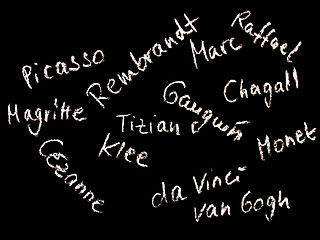 Raffael
Rembrandt
Marc
Picasso
Chagall
Gauguin
Magritte
Tizian
Monet
Klee
Cézanne
da Vinci
van Gogh